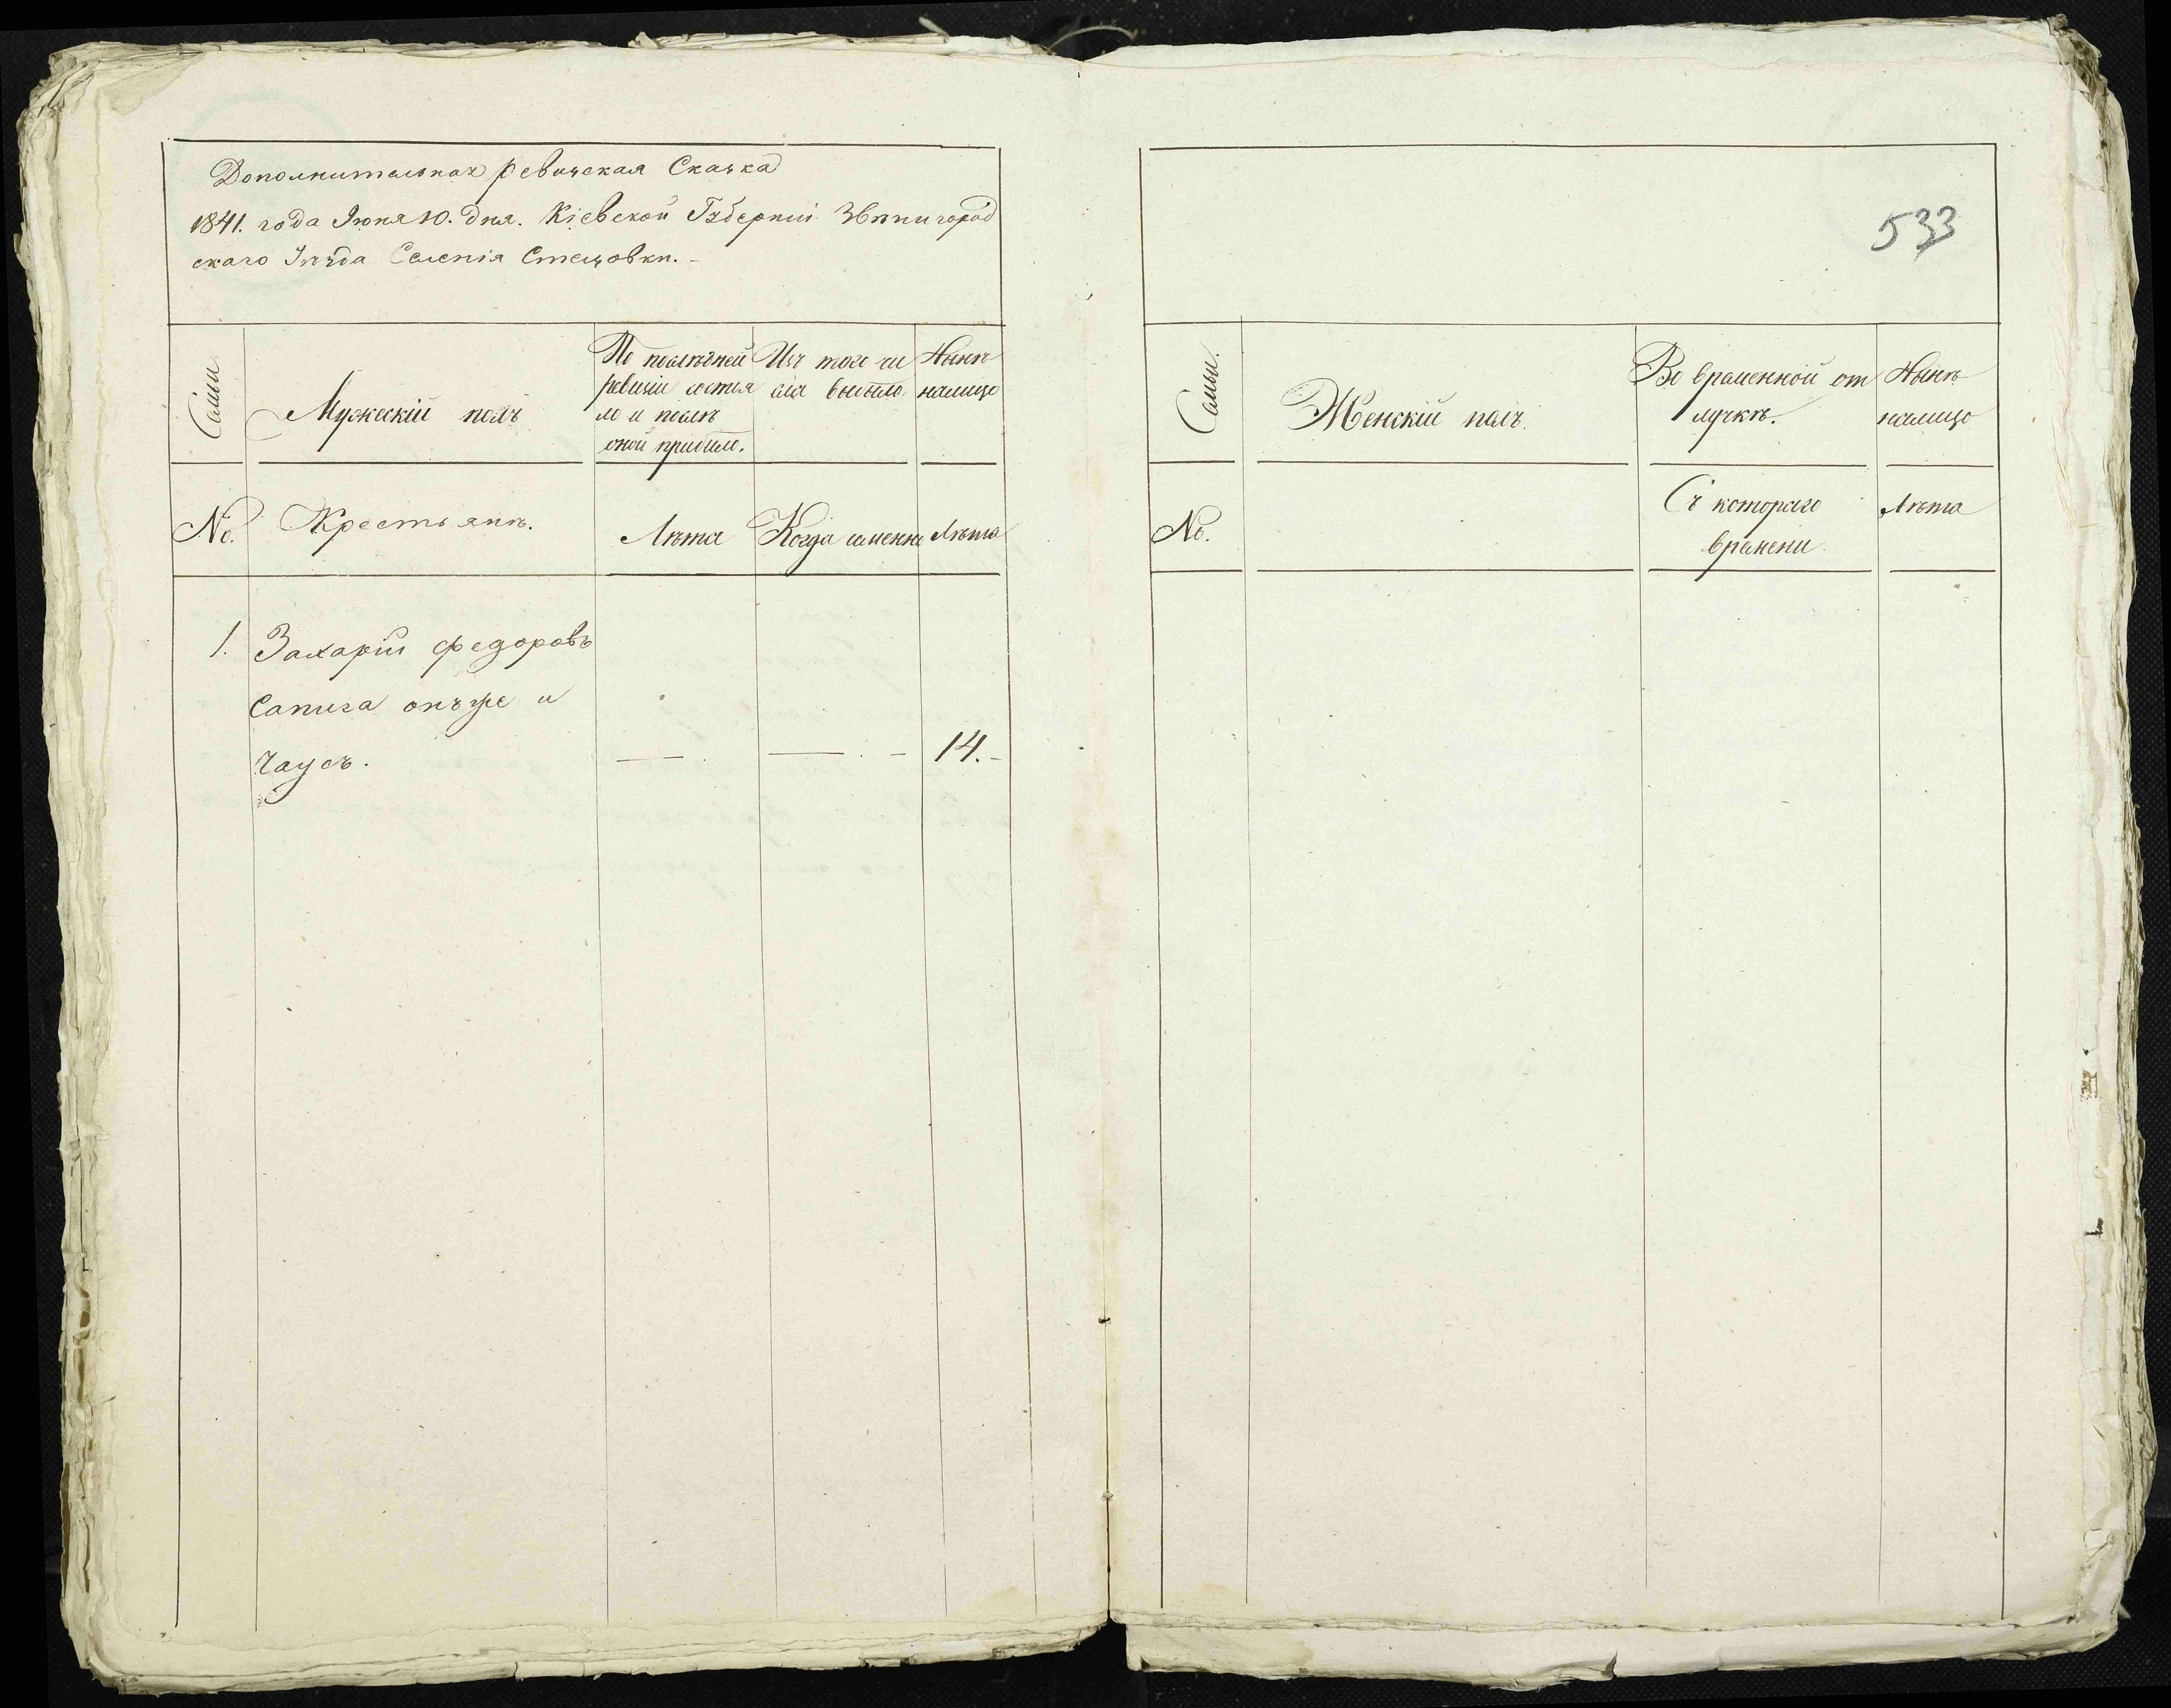 Дополнительная ревизская Сказка
1841. года Июня 10. дня. Кіевской Губерніи Звенигород
скаго Уезда Селенія Стецовки.-
Семьи
Мужескій полъ
По послѣдней
ревизіи состоя
ло и послѣ
оной прибыло.
Изъ того чи
сла выбыло.
Нынѣ
налицо
No.
Крестьяне.
Лѣта
Когда именно
Лѣта
1. Захарій Федоровъ
Сапига онъ же и
Чаусъ. — — . — . — 14.-
533
Семьи.
Женскій полъ.
Во временной от
лучкѣ.
Нынѣ
налицо
No.
Съ котораго
времени
Лѣта